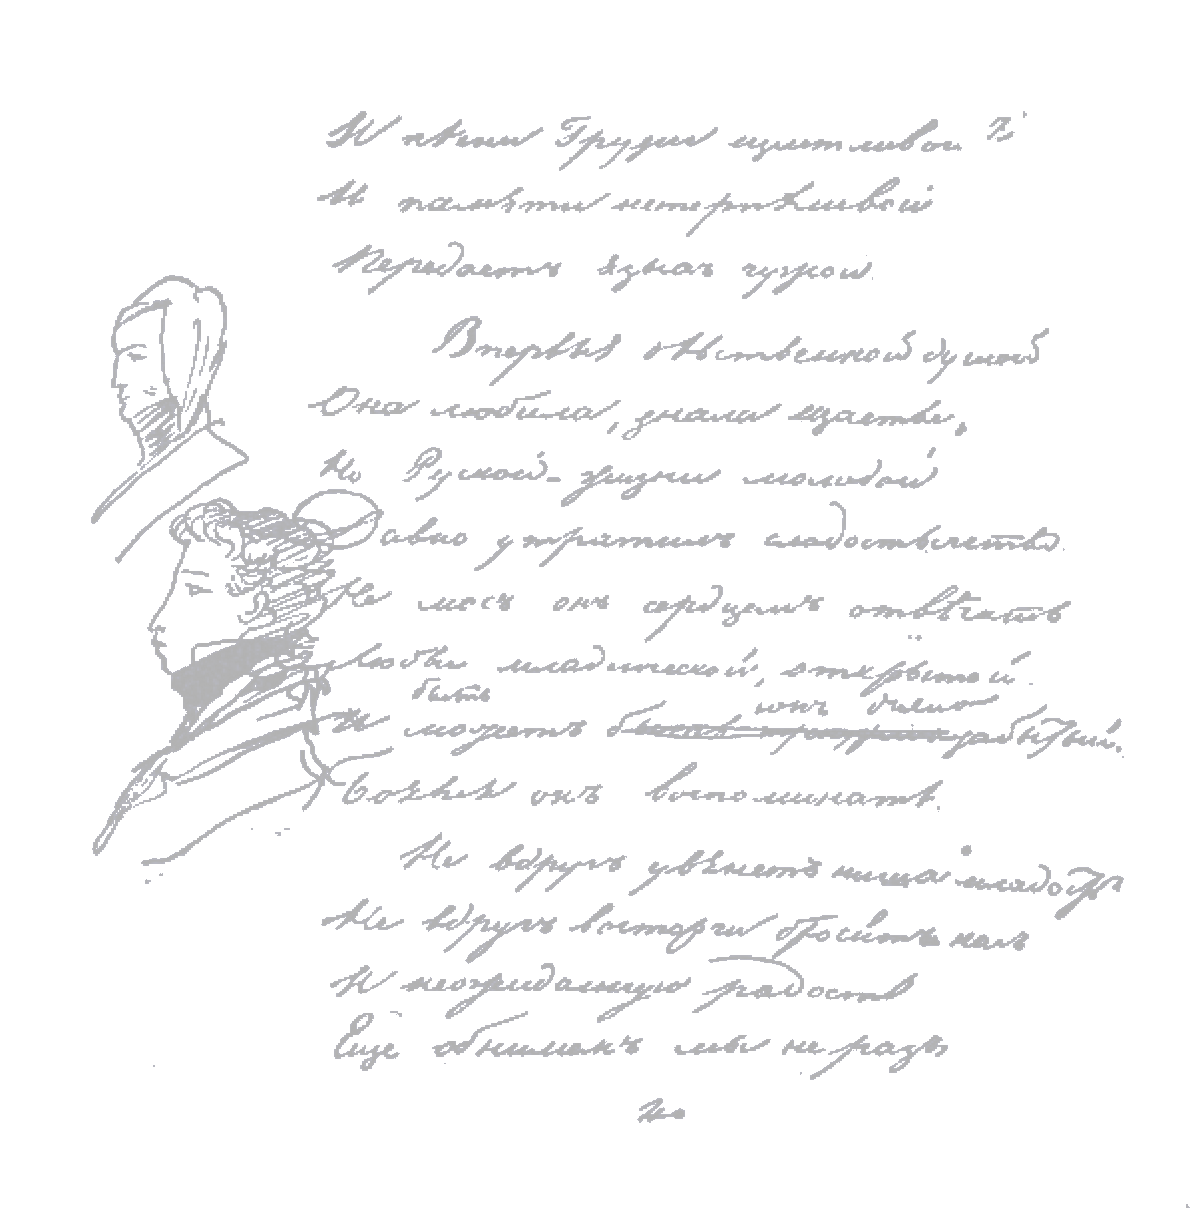 И пѣсни Грузіи щастливой
И памяти нетерпѣливой
Передаетъ языкъ чужой.
Впервыя дѣвственной душой
Она любила, знала щастье,
Но Руской жизни молодой
Давно утратилъ сладострастье.
Не могъ онъ сердцемъ отвѣчать
Любви младенческой, открытой.
быть сонъ
И можетъ забытый.
Боялся онъ воспоминать.
Не вдругъ увянетъ наша младость
Не вдругъ восторги бросятъ насъ
И неожиданную радость
Еще обнимемъ мы не разъ
Но